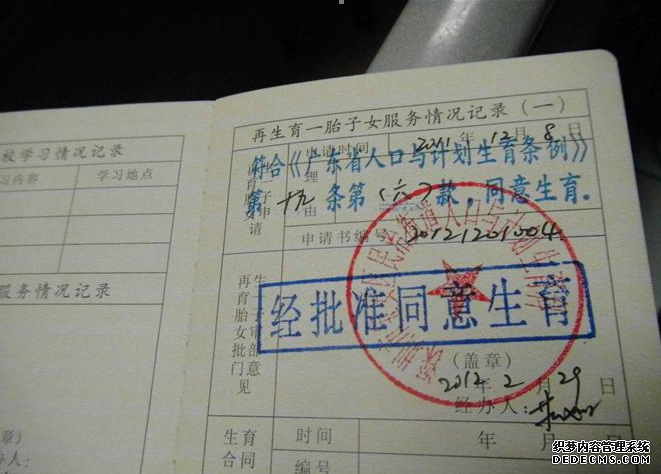 校学习情况记录
习内容 学习地点
服务情况记录
章）
办人：
再生育一胎子女服务情况记录（一）
申请时间 2011年12月8日
符合《广东省人口与计划生育条例》
第十九条第（六）款，同意生育.
理由
申请书编号
再生育一胎子女审批部门意见
经批准同意生育
（盖章）
2012年2月29日
经办人：
生育合同
时间 年 月 日
编号
织梦内容管理系统
DEDECMS.COM